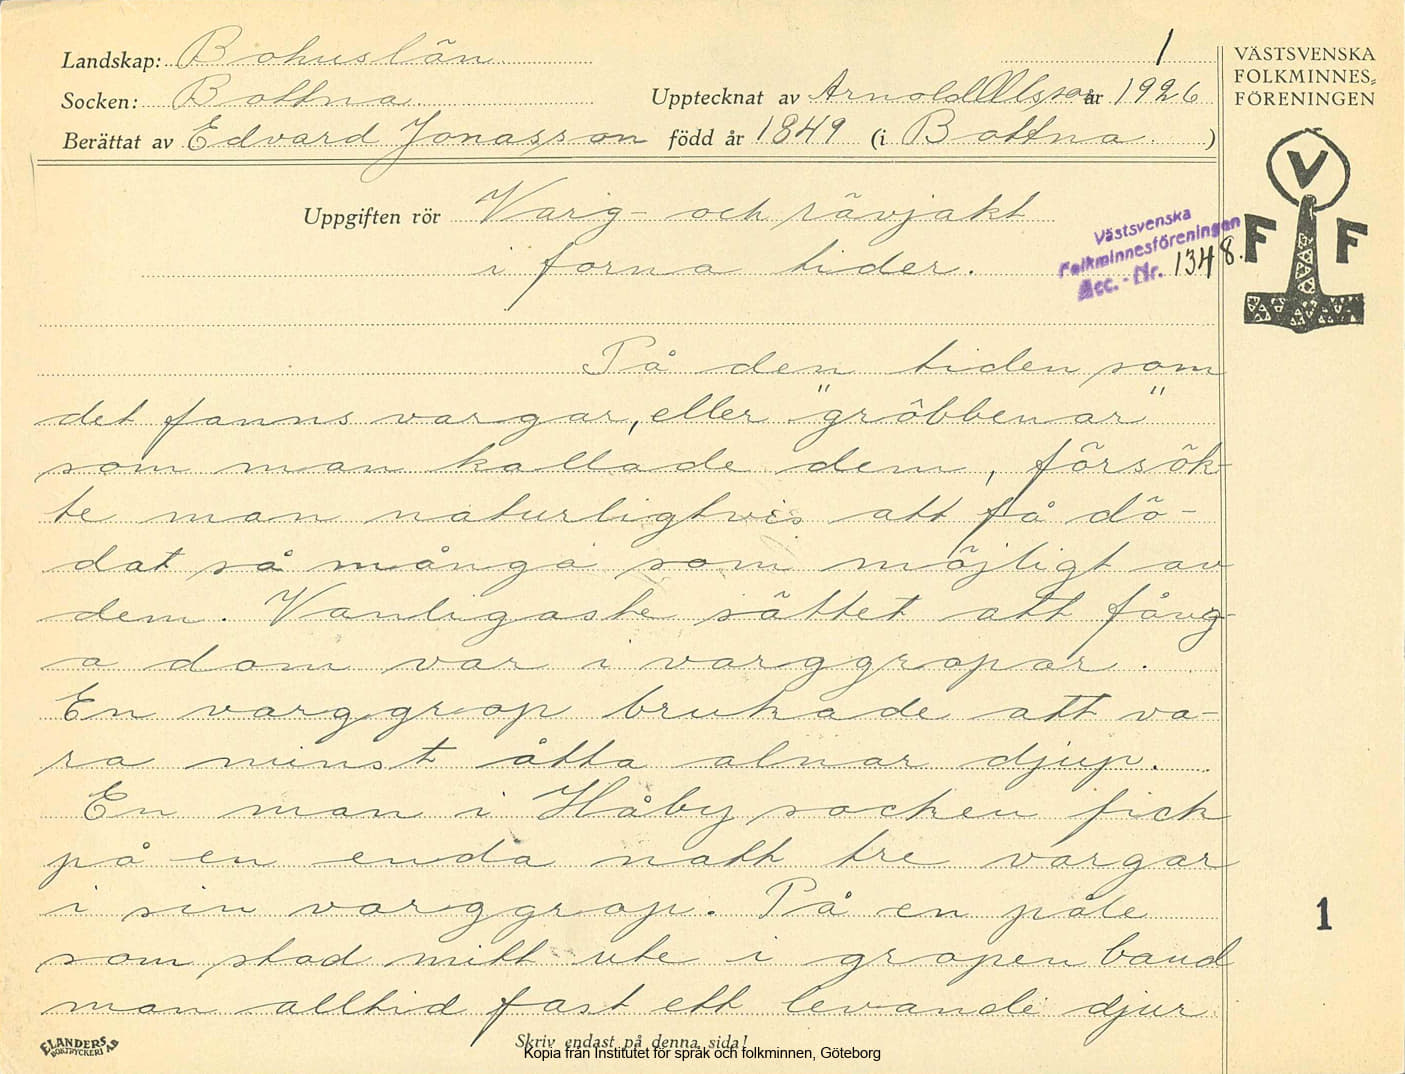 1
Landskap: Bohuslän
Socken: Bottna
Upptecknat av Arnold Olsson år 1926
Berättat av Edvard Jonasson född år 1849 (i Bottna )
VÄSTSVENSKA
FOLKMINNES-
FÖRENINGEN
V
F F
Uppgiften rör Varg- och rävjakt
i forna tider.
Västsvenska
Folkminnesföreningen
Acc. - Nr. 1348.
På den tiden som
det fanns vargar, eller "gröbbenar"
som man kallade dem, försök-
te man naturligtvis att få dö-
dat så många som möjligt av
dem. Vanligaste sättet att fång-
a dom var i varggropar.
En varggrop brukade att va-
ra minst åtta alnar djup.
En man i Håby socken fick
på en enda natt tre vargar
i sin varggrop. På en påle
som stod mitt ute i gropen band
man alltid fast ett levande djur
1
ELANDERS
BOKTRYCKERI AB
Skriv endast på denna sida!
Kopia från Institutet för språk och folkminnen, Göteborg